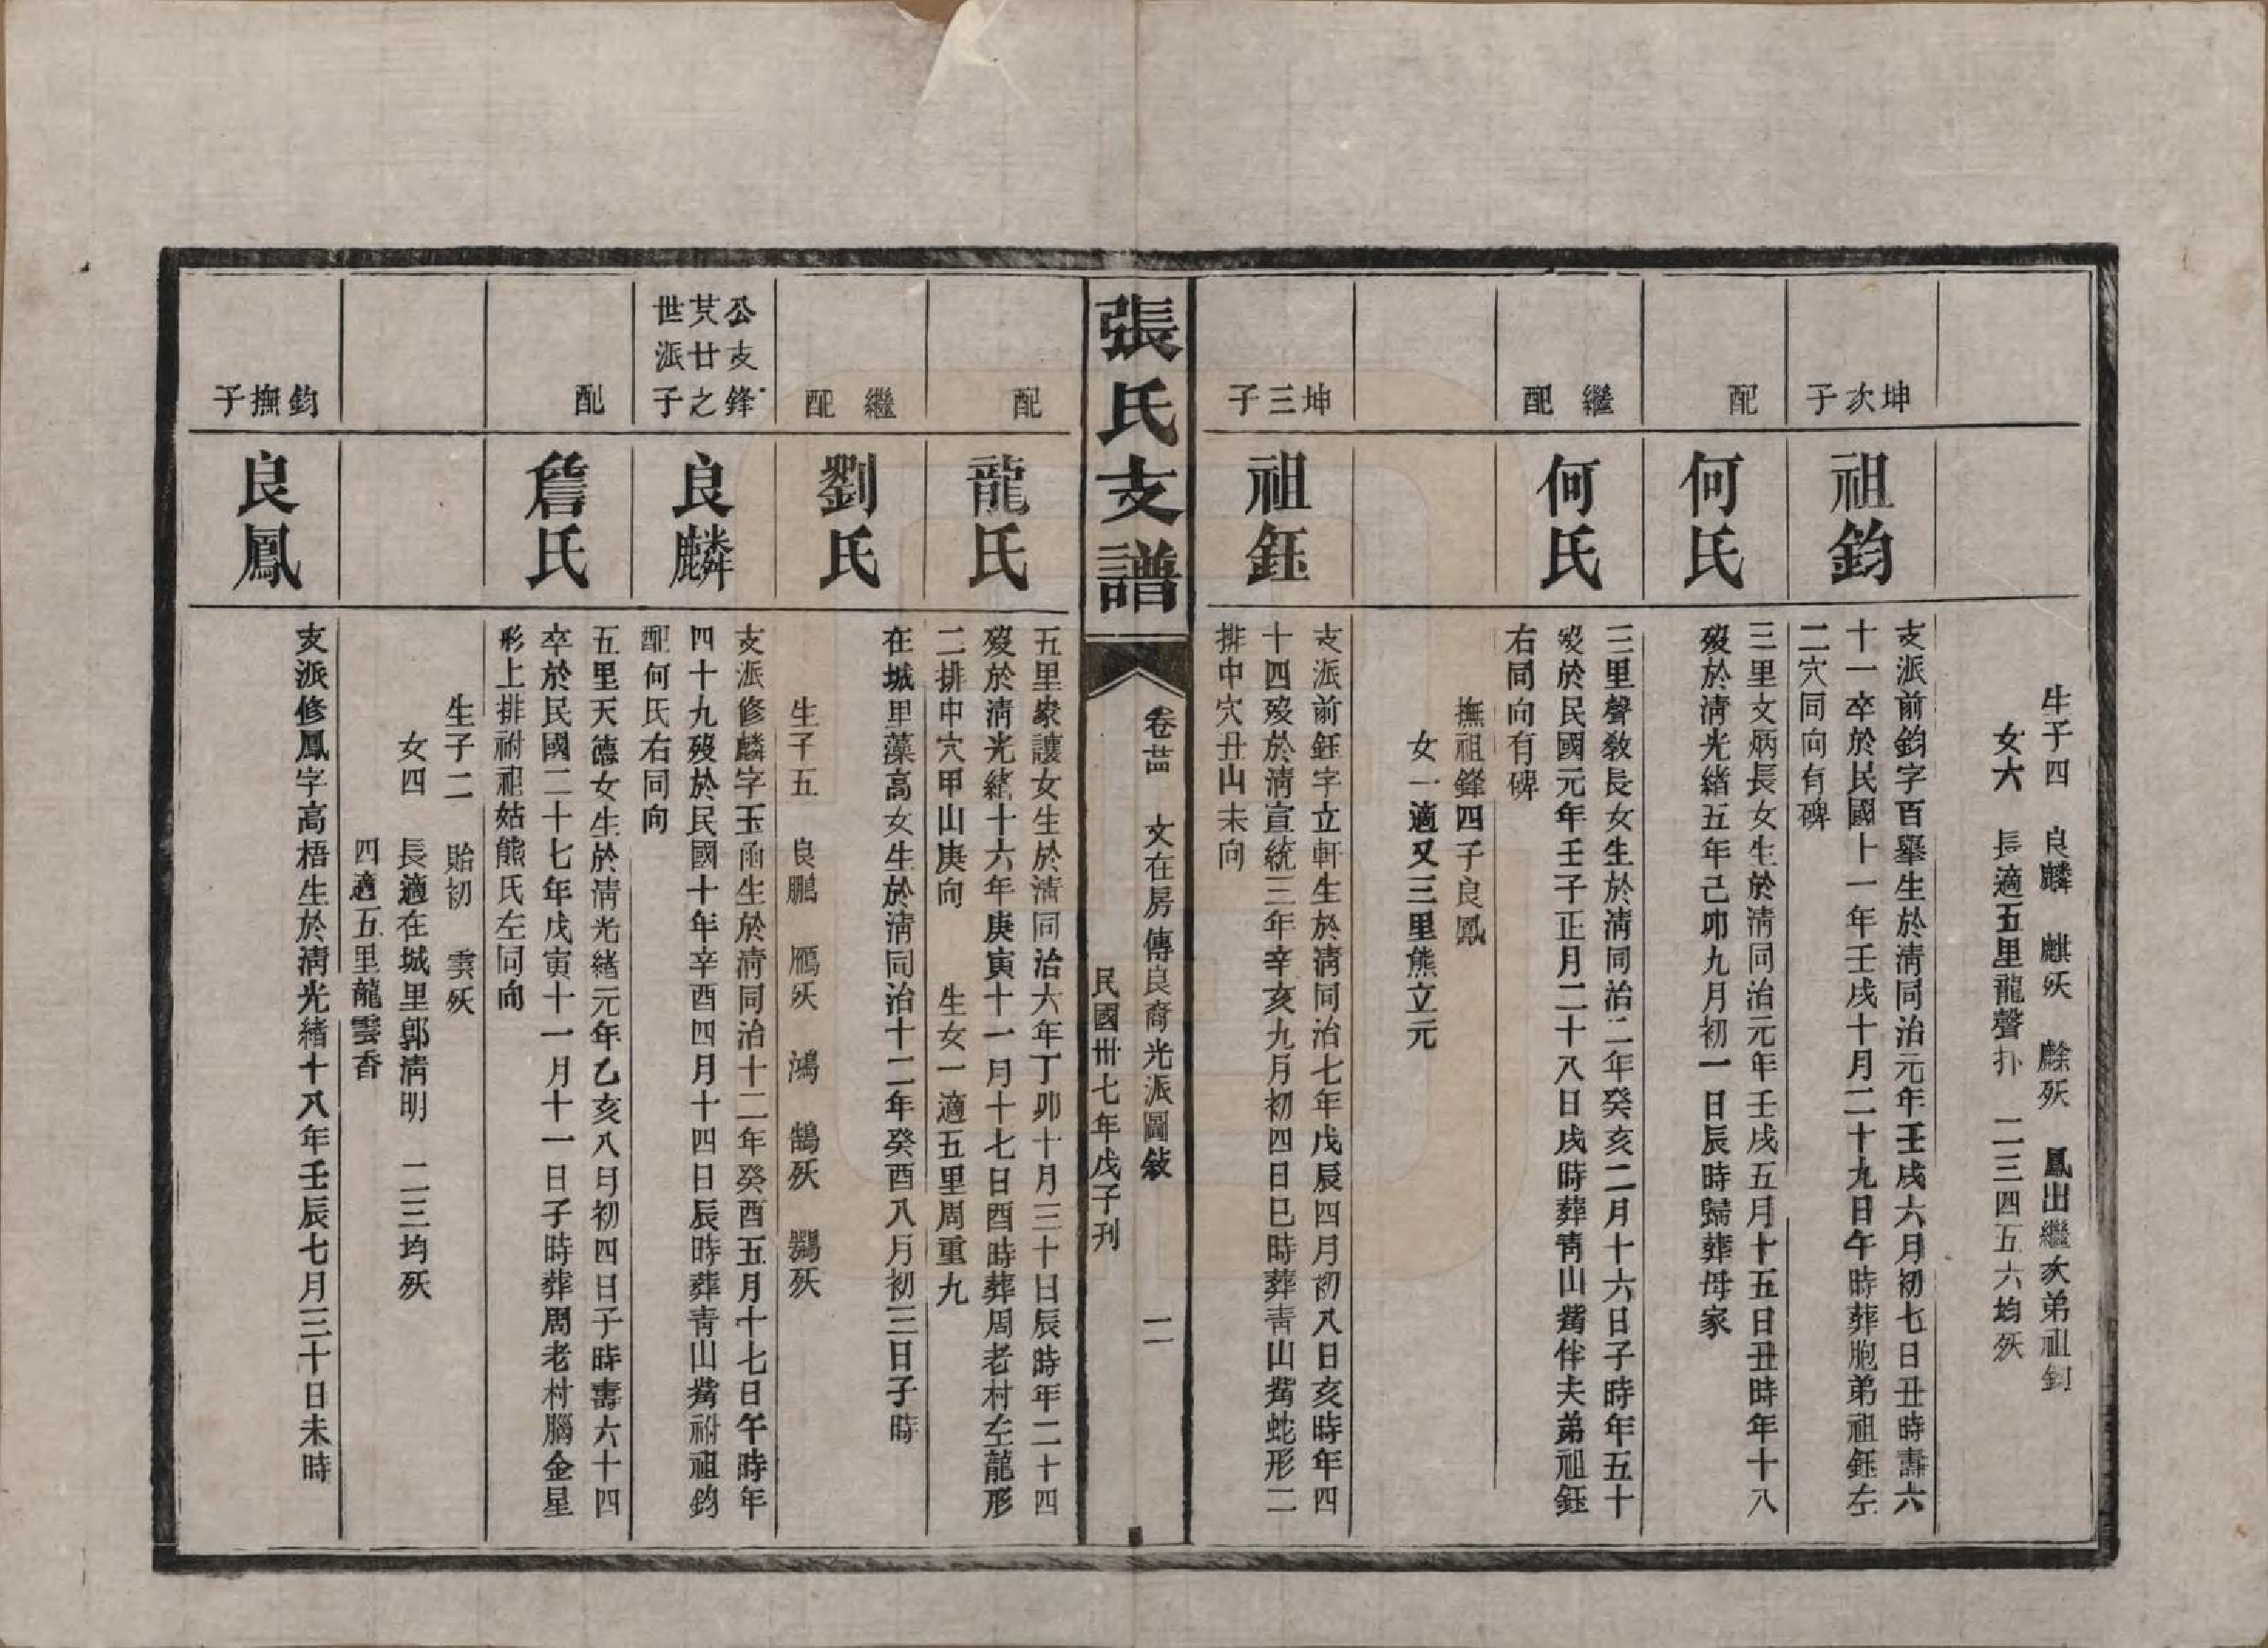 生子四　良麟　麒殀　麟殀　鳳出繼次弟祖鈞
女六　長適五里龍聲扑　二三四五六均殀
坤次子
祖鈞
支派前鈞字百舉生於淸同治元年壬戌六月初七日丑時壽六
十一卒於民國十一年壬戌十月二十九日午時葬胞弟祖鈺左
二穴同向有碑
配
何氏
三里文炳長女生於淸同治元年壬戌五月十五日丑時年十八
歿於淸光緒五年己卯九月初一日辰時歸葬母家
繼配
何氏
三里聲敎長女生於淸同治二年癸亥二月十六日子時年五十
歿於民國元年壬子正月二十八日戌時葬靑山觜伴夫弟祖鈺
右同向有碑
撫祖鋒四子良鳳
女一適又三里熊立元
坤三子
祖鈺
支派前鈺字立軒生於淸同治七年戊辰四月初八日亥時年四
十四歿於淸宣統三年辛亥九月初四日巳時葬靑山觜蛇形二
排中穴丑山未向
張氏支譜
卷廿　文在房傳良裔光派圖敍　二
民國卅七年戊子刊
配
龍氏
五里象讓女生於淸同治六年丁卯十月三十日辰時年二十四
歿於淸光緒十六年庚寅十一月十七日酉時葬周老村左龍形
二排中穴甲山庚向　生女一適五里周重九
繼配
劉氏
在城里藻高女生於淸同治十二年癸酉八月初三日子時
生子五　良鵬　鴈殀　鴻　鵠殀　鶚殀
公支鋒
芃廿之
世派子
良麟
支派修麟字玉甬生於淸同治十二年癸酉五月十七日午時年
四十九歿於民國十年辛酉四月十四日辰時葬靑山觜祔祖鈞
配何氏右同向
配
詹氏
五里天德女生於淸光緒元年乙亥八月初四日子時壽六十四
卒於民國二十七年戊寅十一月十一日子時葬周老村腦金星
形上排祔祖姑熊氏左同向
生子二　貽初　雲殀
女四　長適在城里郭淸明　二三均殀
四適五里龍雲香
鈞撫子
良鳳
支派修鳳字高梧生於淸光緒十八年壬辰七月三十日未時